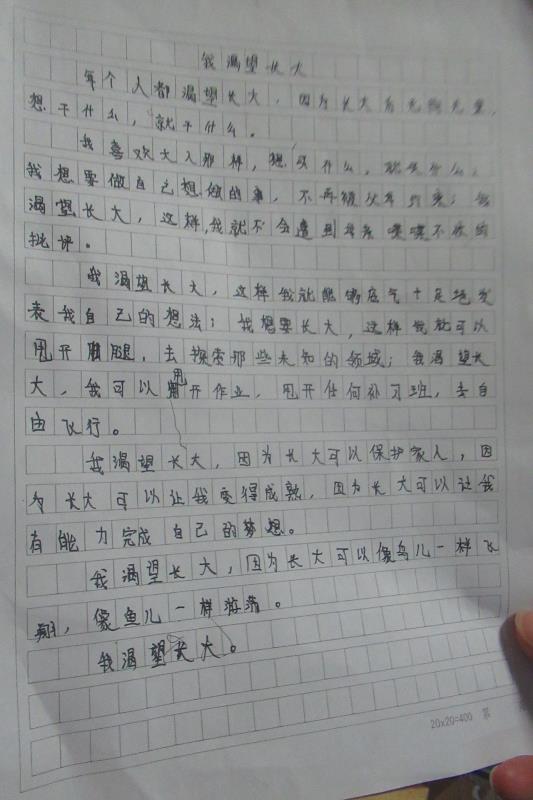 我渴望长大
每个人都渴望长大，因为长大后无拘无束，
想干什么，就干什么。
我喜欢大人那样，想买什么，就买什么；
我想要做自己想做的事，不再被父母约束；我
渴望长大，这样，我就不会遭到母亲喋喋不休的
批评。
我渴望长大，这样我就能够底气十足地发
表我自己的想法；我想要长大，这样我就可以
甩开腿，去探索那些未知的领域；我渴望长
大，我可以甩开作业，甩开任何补习班，去自
由飞行。
我渴望长大，因为长大可以保护家人，因
为长大可以让我变得成熟，因为长大可以让我
有能力完成自己的梦想。
我渴望长大，因为长大可以像鸟儿一样飞
翔，像鱼儿一样游荡。
我渴望长大。
20×20=400 第